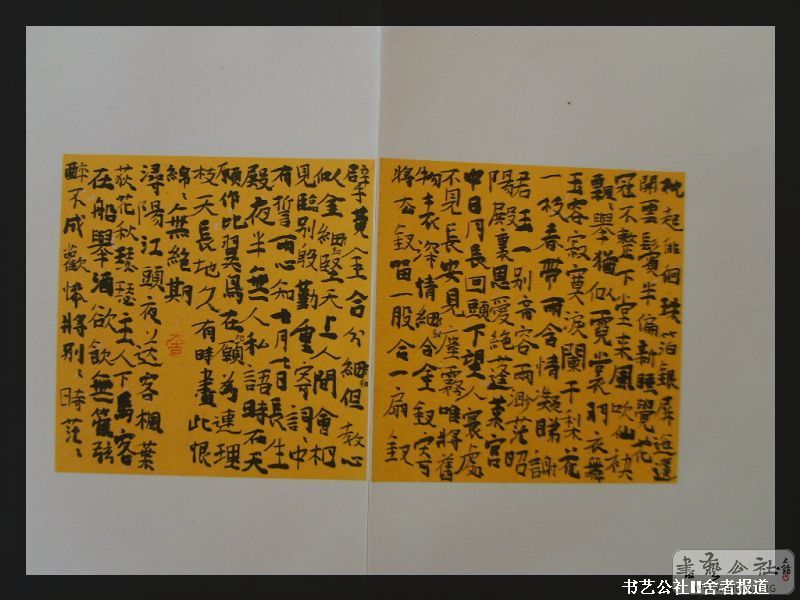 枕起徘徊珠箔銀屏迤邐
開雲鬢半偏新睡覺花
冠不整下堂來風吹仙袂
飄〻舉猶似霓裳羽衣舞
玉容寂寞淚闌干梨花
一枝春帶雨含情凝睇謝
君王一别音容兩渺茫昭
陽殿裏恩愛絕蓬萊宮
中日月長回頭下望人寰處
不見長安見塵霧唯將舊
物表深情鈿合金釵寄
將去釵留一股合一扇釵
擘黄金合分鈿但教心
似金鈿堅天上人間會相
見臨別殷勤重寄詞〻中
有誓兩心知七月七日長生
殿夜半無人私語時在天
願作比翼鳥在願為連理
枝天長地久有時盡此恨
綿〻無絕期
潯陽江頭夜送客楓葉
荻花秋瑟瑟主人下馬客
在船舉酒欲飲無管弦
醉不成歡慘將别〻時茫〻
書藝公社
书艺公社II舍者报道